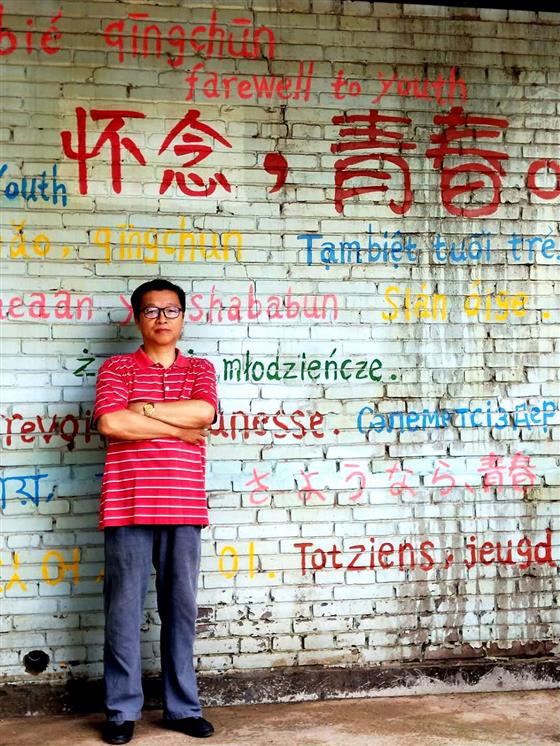 bié qīngchūn
farewell to youth
怀念，青春。
Youth
ǎo, qīngchun
Tạm biệt tuổi trẻ.
shababun
Slán óige.
młodzieńcze.
revoi unesse.
Сәлеметсіздер
さようなら、青春
어
이.
Totziens, jeugd